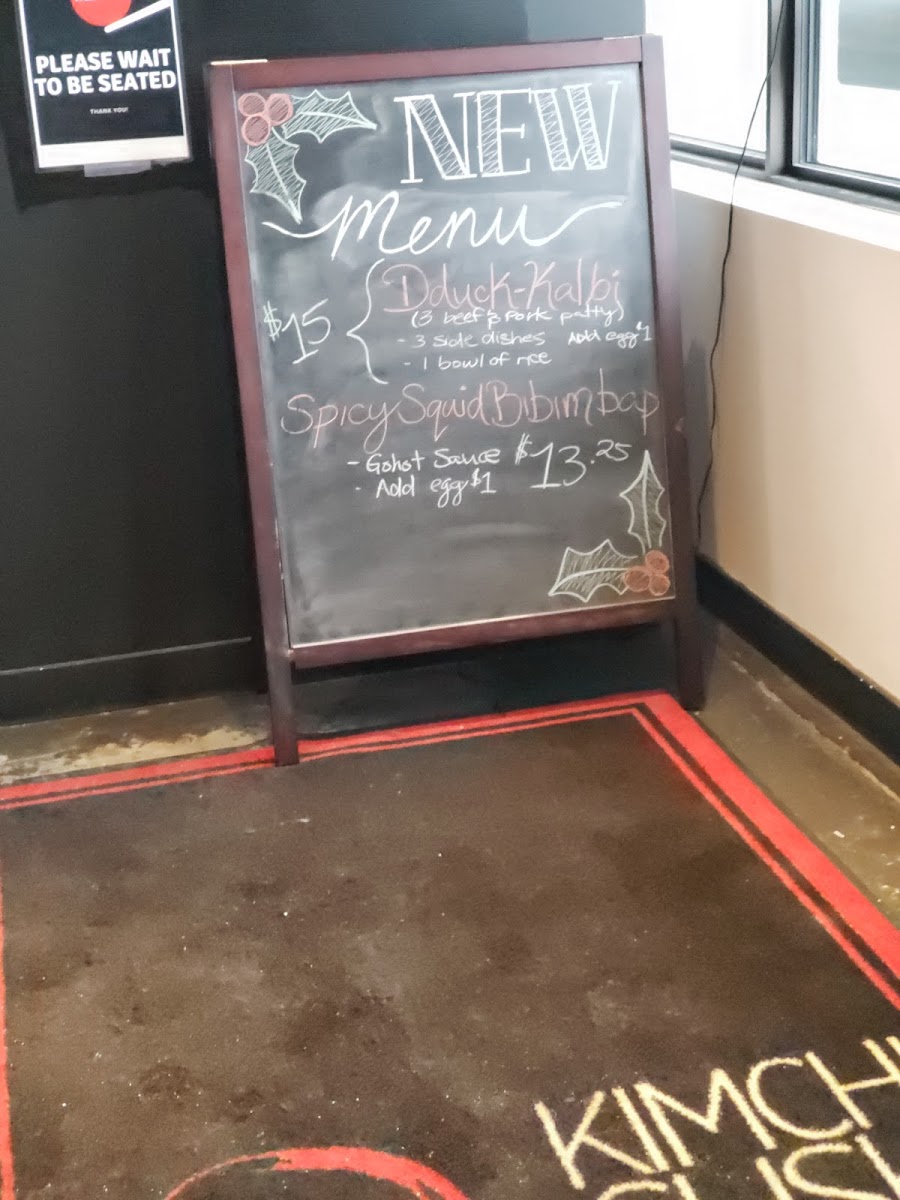 PLEASE WAIT
TO BE SEATED
THANK YOU!
NEW
Menu
Dduck-Kalbi
$15
(3 beef & Pork patty)
- 3 side dishes Add egg $1
- 1 bowl of rice
Spicy Squid Bibimbap
- Gohot Sauce $13.25
- Add egg $1
KIMCHI